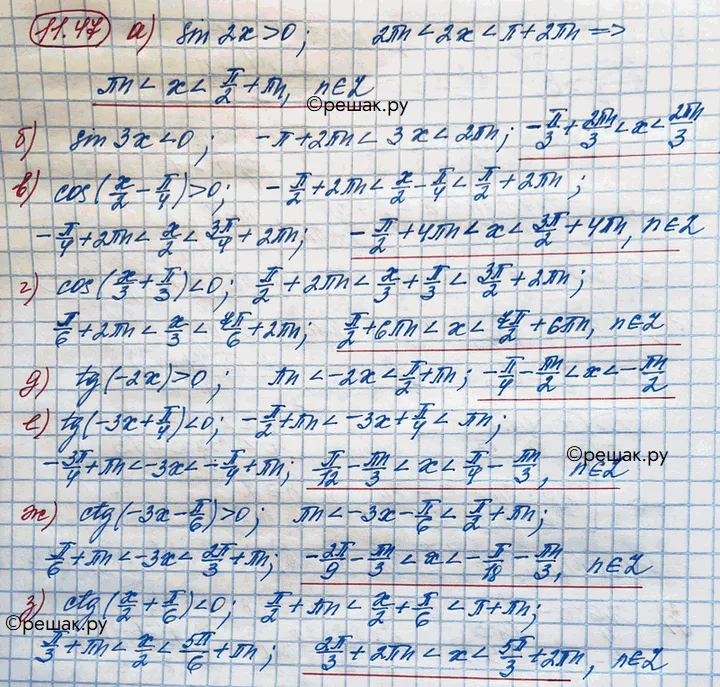 11.47 а) sin 2x>0; 2πn<2x<π+2πn =>
πn < x < π/2+πn, n∈Z
©решак.ру
б) sin 3x<0; -π+2πn< 3x<2πn; -π/3+2πn/3<x<2πn/3
в) cos(x/2-π/4)>0; -π/2+2πn<x/2-π/4<π/2+2πn;
-π/4+2πn<x/2<3π/4+2πn; -π/2+4πn<x<3π/2+4πn, n∈Z
г) cos(x/3+π/3)<0; π/2+2πn<x/3+π/3<3π/2+2πn;
π/6+2πn<x/3<7π/6+2πn; π/2+6πn<x<7π/2+6πn, n∈Z
д) tg(-2x)>0; πn<-2x<π/2+πn; -π/4-πn/2<x<-πn/2
е) tg(-3x+π/4)<0; -π/2+πn<-3x+π/4<πn;
-3π/4+πn<-3x<-π/4+πn; π/12-πn/3<x<π/4-πn/3, n∈Z
©решак.ру
ж) ctg(-3x-π/6)>0; πn<-3x-π/6<π/2+πn;
π/6+πn<-3x<2π/3+πn; -2π/9-πn/3<x<-π/18-πn/3, n∈Z
з) ctg(x/2+π/6)<0; π/2+πn<x/2+π/6<π+πn;
©решак.ру
π/3+πn<x/2<5π/6+πn; 2π/3+2πn<x<5π/3+2πn, n∈Z